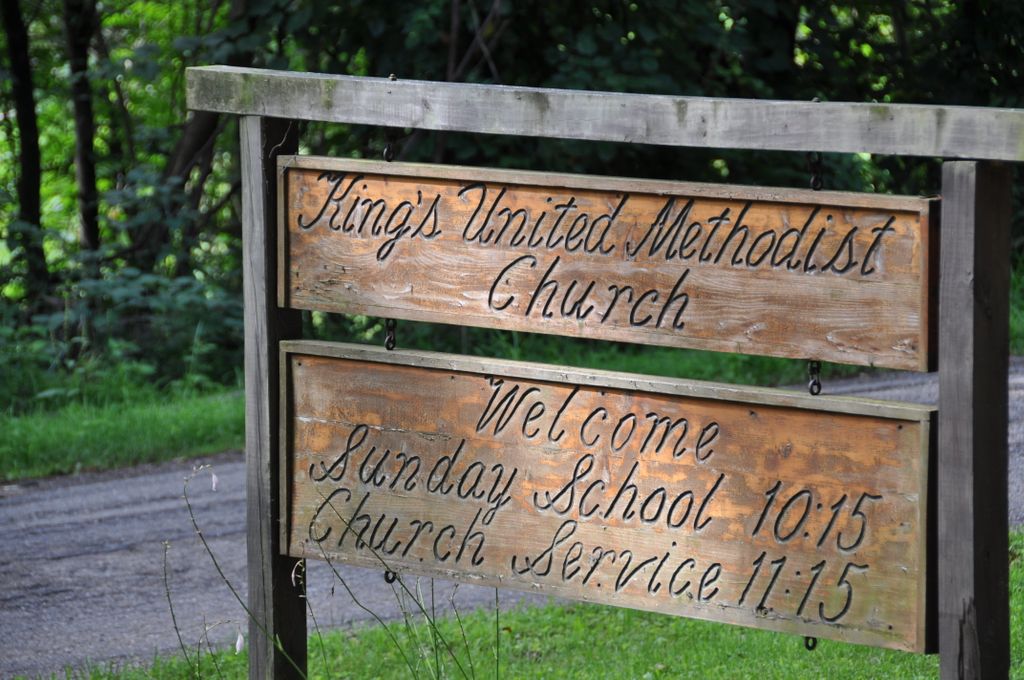 King's United Methodist
Church
Welcome
Sunday School 10:15
Church Service 11:15